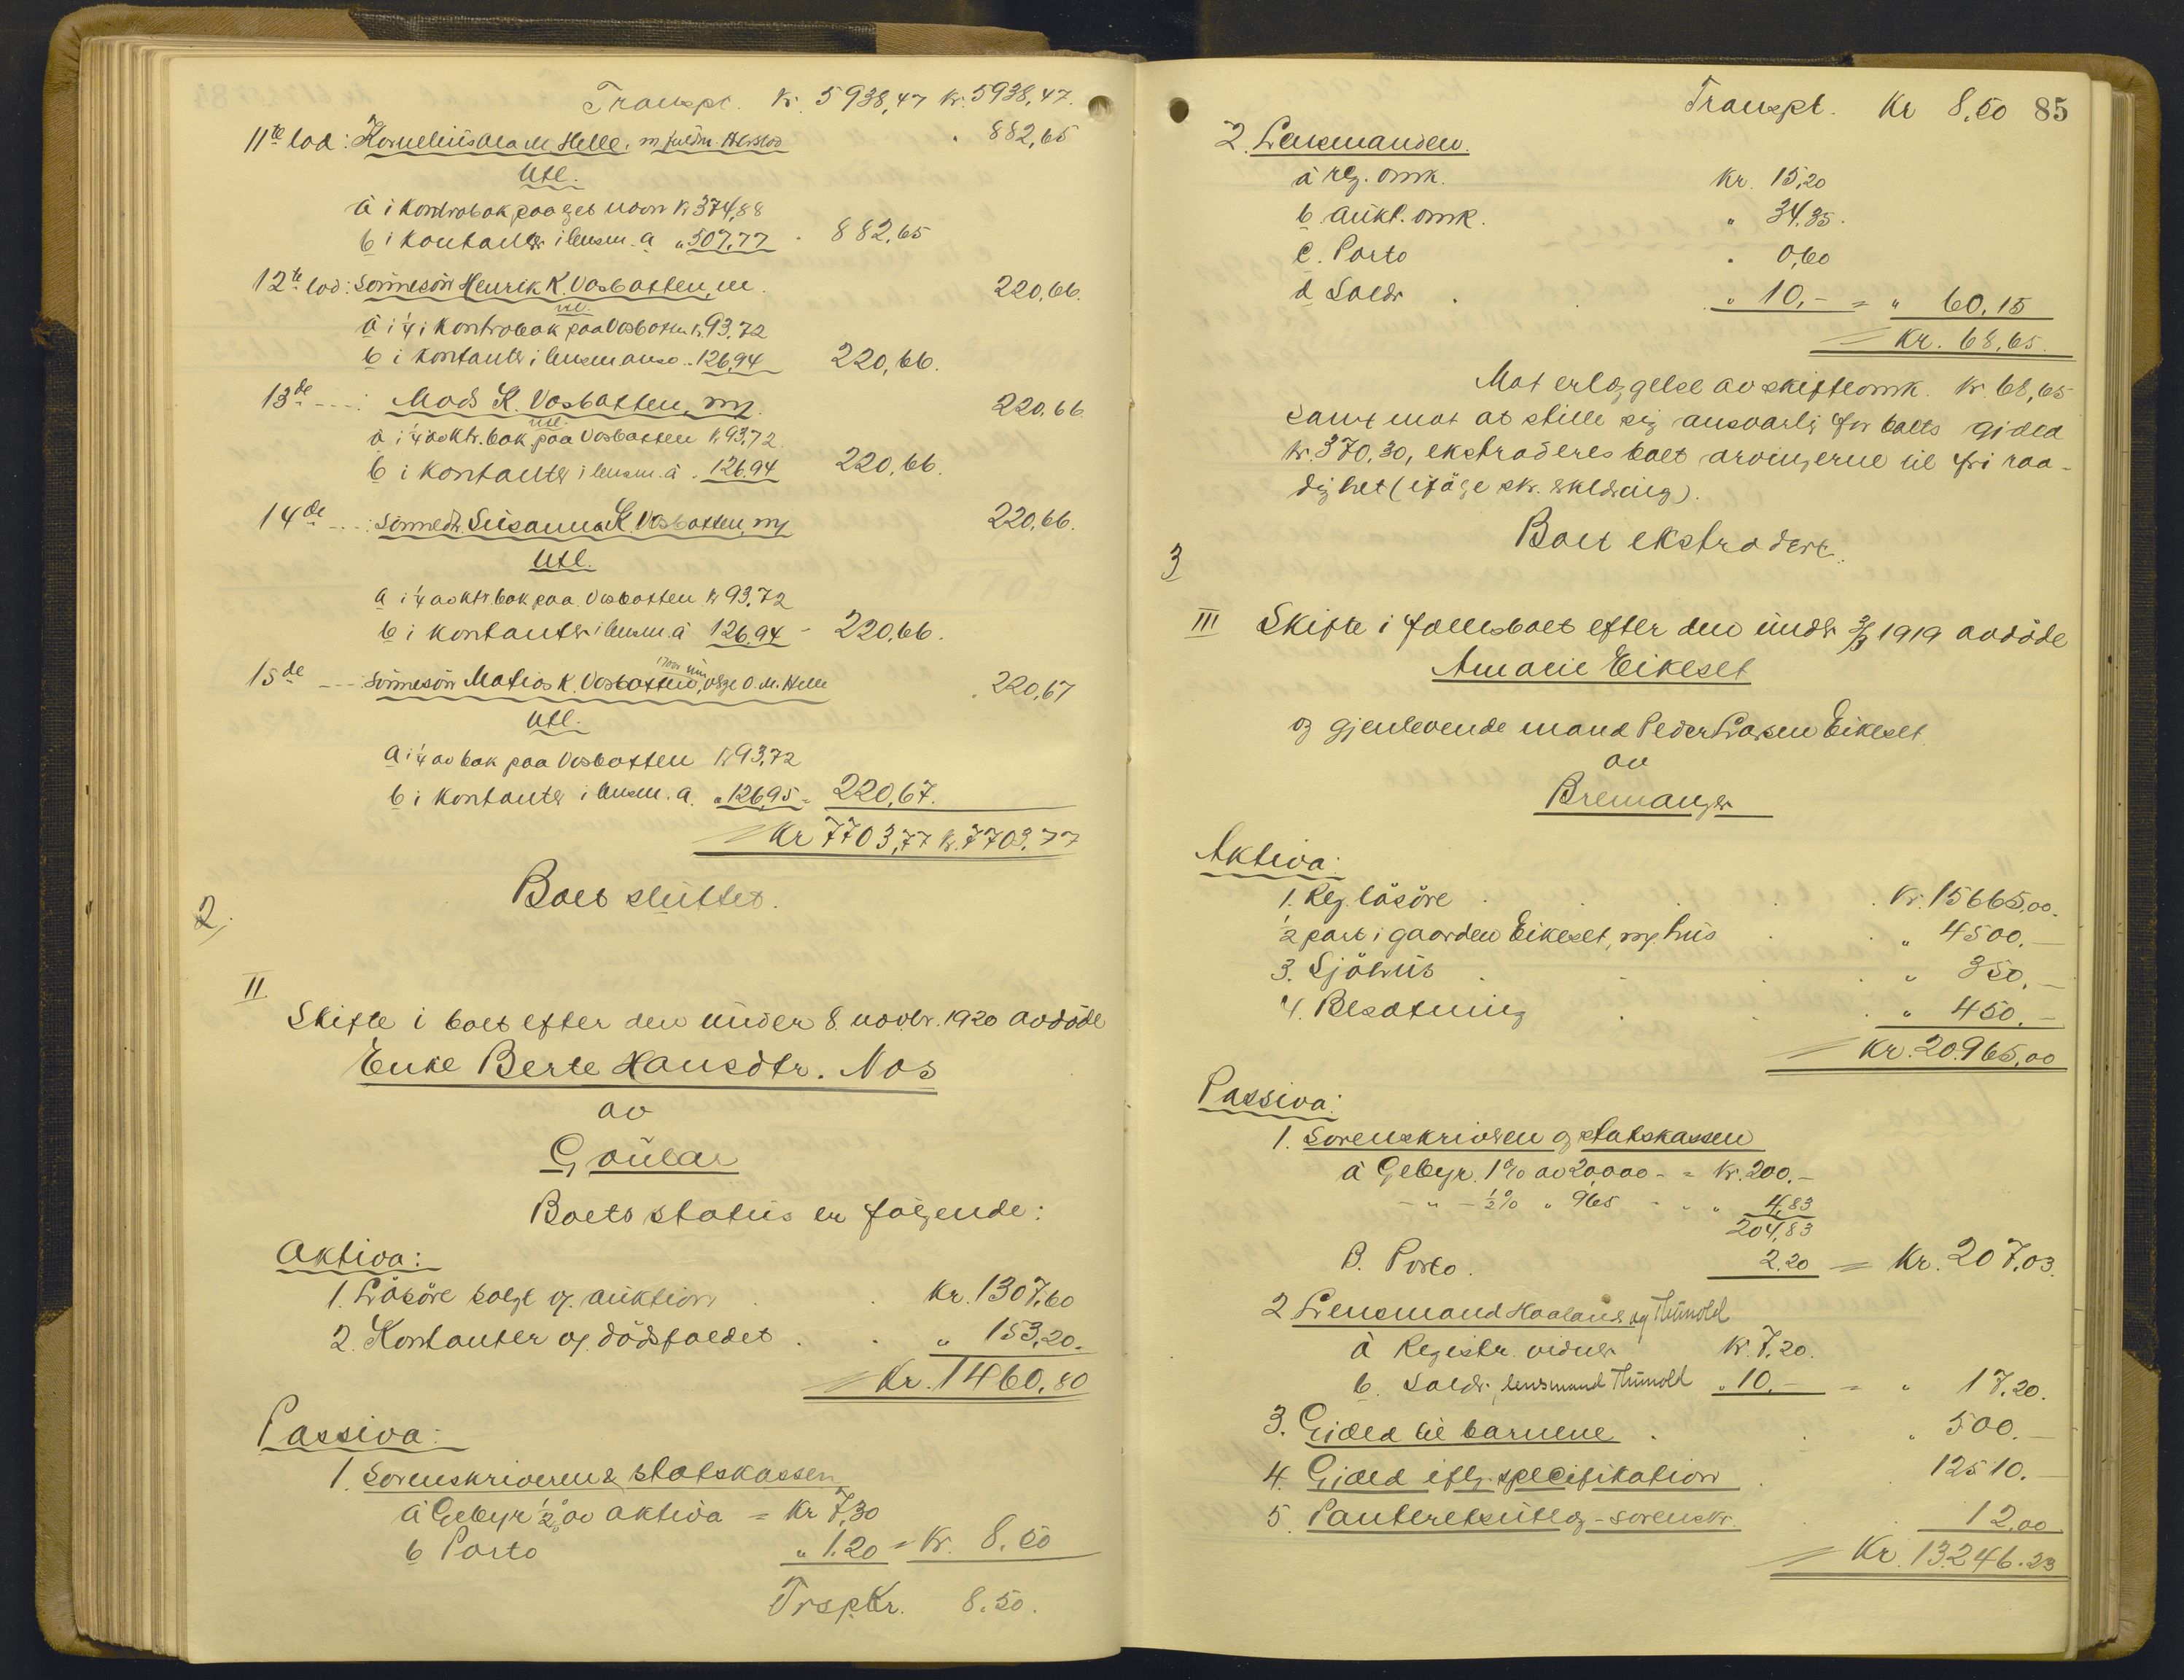 Transpt. Kr. 5938,47 Kr. 5938,47.
11te lod: Kornelius Ola M. Helle, m
" 882,65
Utl.
a i Kontrobok paa Kr 374,88
b i Kontanter i lensm. a " 507,77 - 882,65
12te lod: Sönnesön Henrik K. Vasbotten, m. 220,66.
utl.
a i ¼ i Kontrobok paa Vasbotten Kr. 93,72
b i Kontanter i lensmans a. " 126,94 220,66.
13de --- : Mads K. Vasbotten, my. 220,66
utl.
a i ¼ av Ktr.bok paa Vasbotten Kr 93,72
b i Kontanter i lensm. a . 126,94 220,66.
14de --- : Sönnedtr. Susanna K. Vasbotten, my 220,66.
Utl.
a i ¼ av Ktr.bok paa Vasbotten Kr 93,72
b i Kontanter i lensm. a 126,94 - 220,66.
15de --- Sönnesön Matias K. Vasbotten, værge O. M. Helle . 220,67
Utl.
a i ¼ av bok paa Vasbotten Kr 93,72
b i Kontanter i lensm. a. " 126,95 = 220,67.
= Kr 7703,77 Kr. 7703,77
Boet sluttet.
2.
II
Skifte i boet efter den under 8. novbr. 1920 avdöde
Enke Berte Hansdtr. Nos
av
Gaular
Boets status er følgende:
Aktiva:
1. Lösöre solgt v. auktion . . Kr. 1307,60
2. Kontanter v. dödsfaldet . . " 153,20.
= Kr. 1460,80
Passiva:
1. Sorenskriveren & statskassen
a Gebyr ½ % av aktiva = Kr 7,30
b Porto " 1.20 = Kr. 8.50
Trsp. Kr. 8.50.
Transpt. Kr 8,50 85
2. Lensmanden.
a reg. omk. Kr. 15,20
b. aukt. omk. " 34,35.
c. Porto " 0,60
d Saldr . " 10,- = " 60,15
= Kr. 68,65.
Mot erlæggelse av skifteomk. Kr. 68,65
samt mot at stille sig ansvarlig for boets gjæld
Kr. 370,30, ekstraderes boet arvingerne til fri raa-
dighet (ifølge skr. erklæring).
Boet ekstradert.
3
III Skifte i fællesboet efter den under 3/3 1919 avdöde
Amarie Eikeset
og gjenlevende mand Peder Larsen Eikeset
av
Bremanger
Aktiva:
1. Reg. lösöre . . . Kr. 15665,00.
½ part i gaarden Eikeset, m. hus . . " 4500.—
3. Sjöhus . . . " 350.—
4. Besætning . . . " 450.—
= Kr. 20.965,00
Passiva:
1. Sorenskriveren og statskassen
a Gebyr. 1 % av 20,000 - = Kr. 200.-
- " - ½ % " 965 - " " 4,83
204,83
B. Porto. 2.20 = Kr. 207,03.
2 Lensmand Haaland og Thunold
a Registr. vidner Kr. 7.20.
b. Saldr, lensmand Thunold " 10.— = " 17.20.
3. Gjæld til barnene . . " 500.—
4. Gjæld iflg. specifikation . . 12510.—
5. Panteretsutlæg - sorenskr. . . 12,00
= Kr. 13246.23